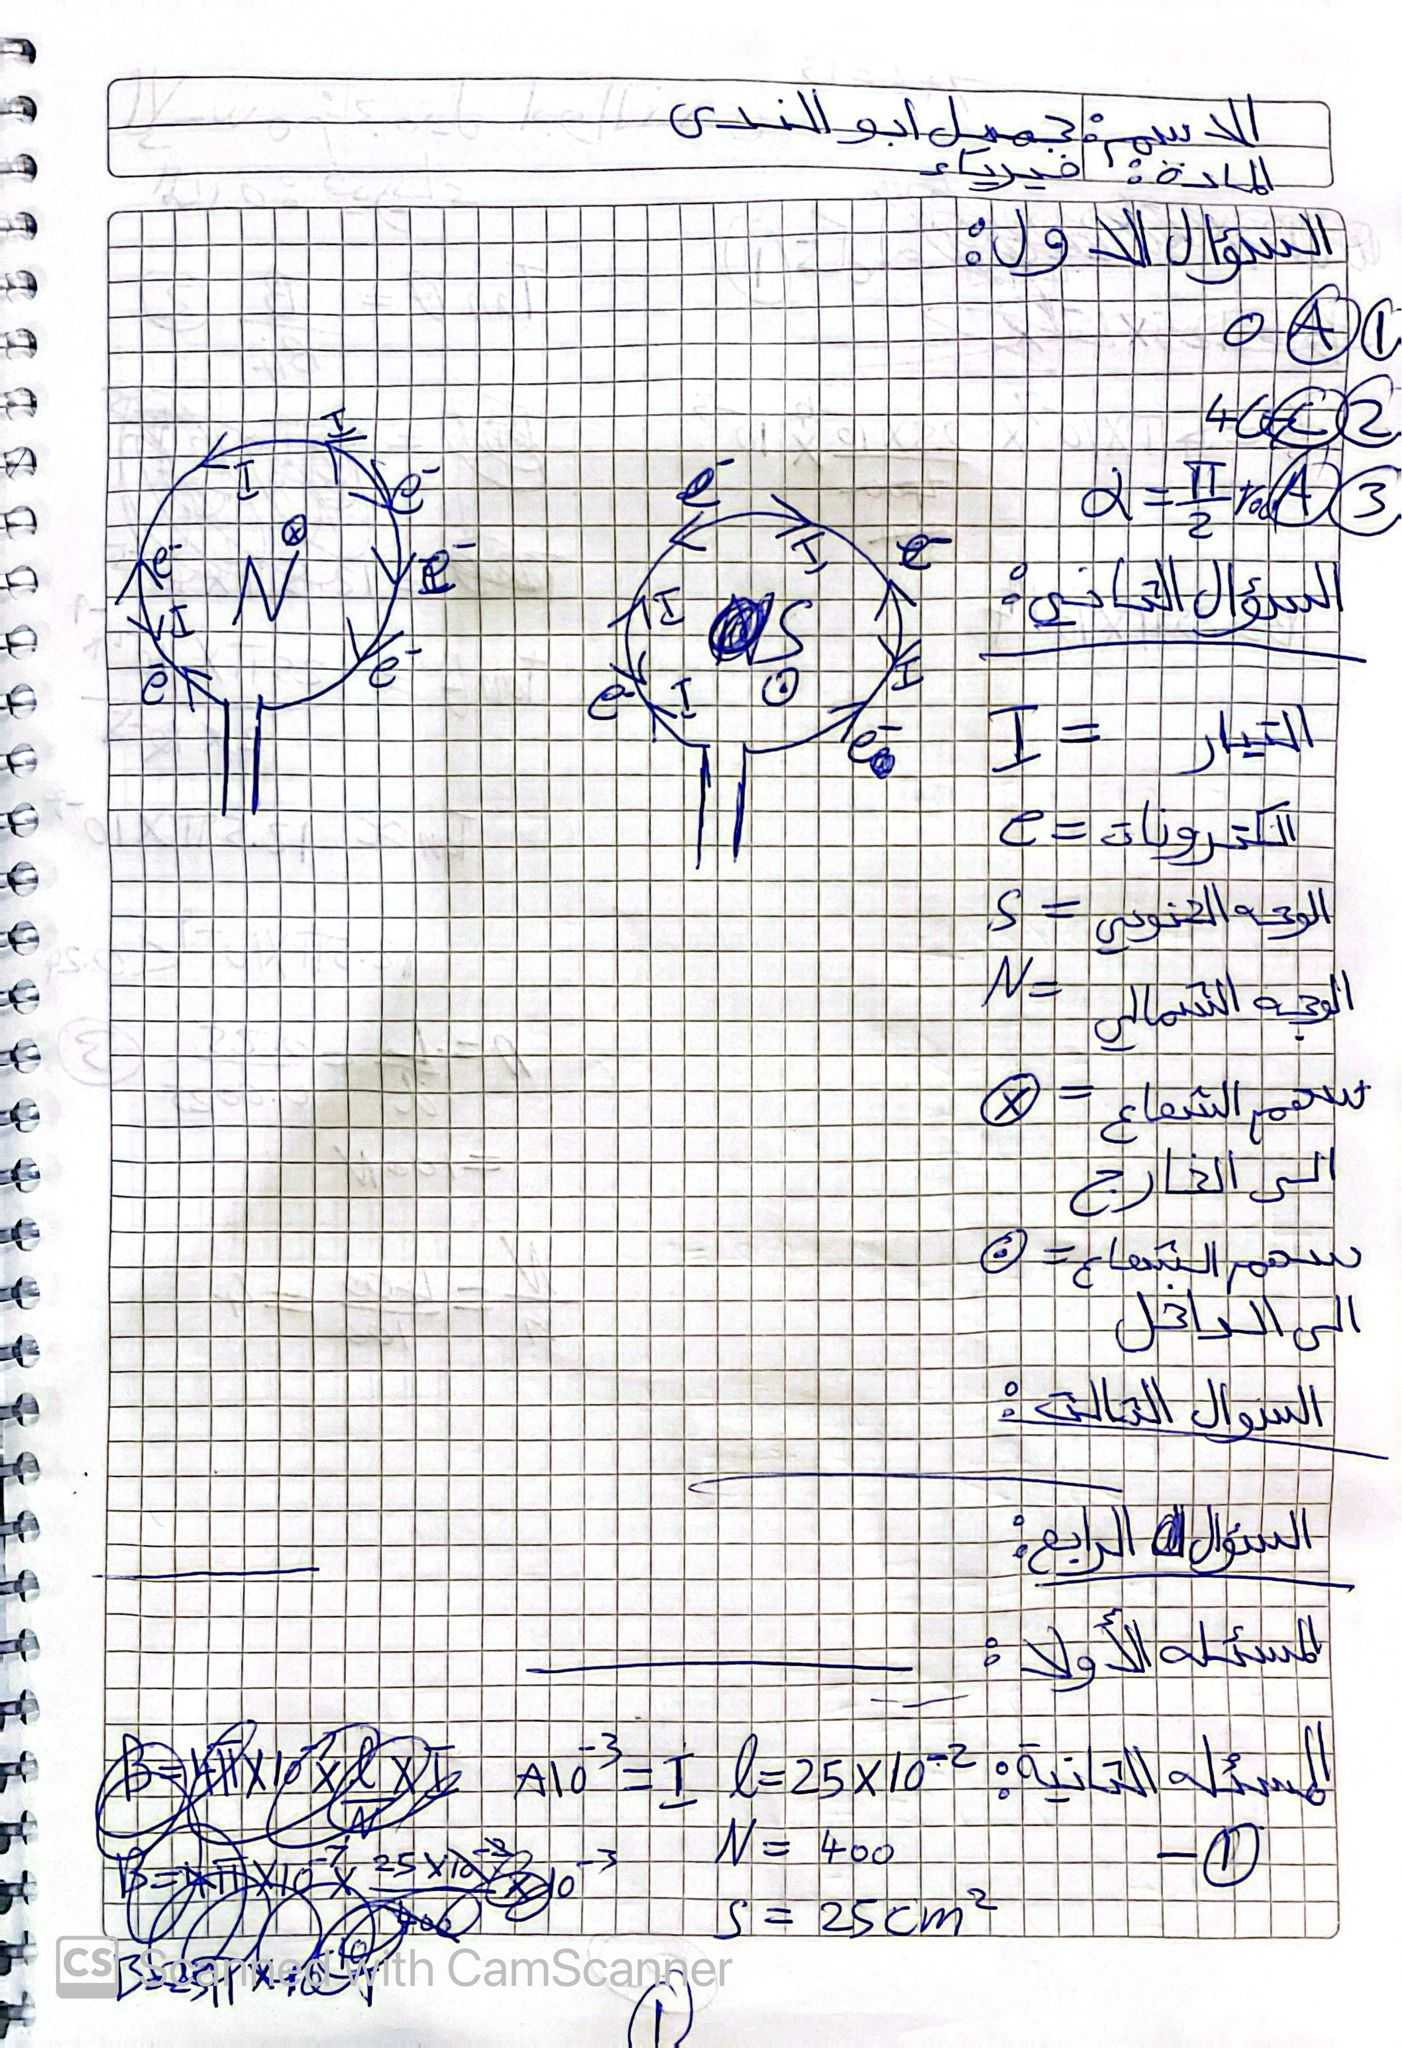 الاسم: جميل ابو الندى
المادة: فيزياء
السؤال الاول:
① Ⓐ 0
② Ⓒ 4
③ Ⓐ α = π/2 rad
السؤال الثاني:
I
I
e⁻
e⁻
e⁻
e⁻
I
e⁻
N
⊗
e⁻
I
e⁻
I
I
S
⊙
e⁻
I
e⁻
التيار = I
الكترونات = e
الوجه الجنوبي = S
الوجه الشمالي = N
سهم الشعاع = ⊗
الى الخارج
سهم الشعاع = ⊙
الى الداخل
السؤال الثالث:
السؤال الرابع:
المسئلة الأولا:
المسئلة الثانية: l = 25 × 10⁻² I = 10⁻³ A
① - N = 400
S = 25 cm²
B = 4π × 10⁻⁷ × l/N × I
B = 4π × 10⁻⁷ × 25 × 10⁻²/400 × 10⁻³
CS Scanned with CamScanner
1